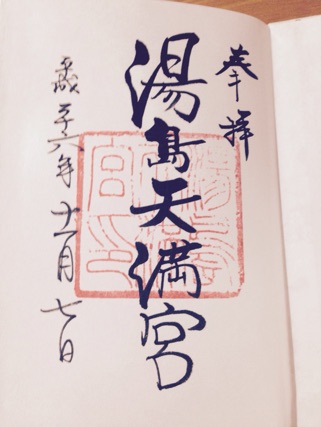 奉拝
湯島天満宮
平成二十六年十一月七日